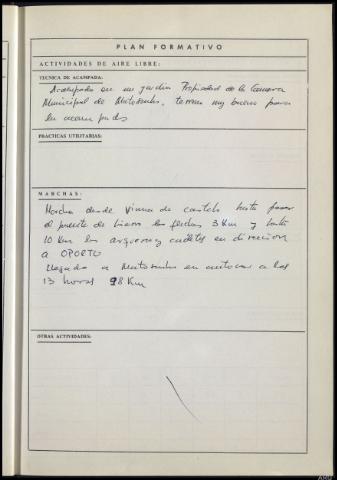 PLAN FORMATIVO
ACTIVIDADES DE AIRE LIBRE:
TECNICA DE ACAMPADA:
Acampados en un jardin Propiedad de la Camara
Municipal de Matosinhos, terreno muy bueno para
la acampada
PRACTICAS UTILITARIAS:
MARCHAS:
Marcha desde Viana de Castelo hasta pasar
el puente de los flechas 3 Km y hasta
10 Km los arqueros y cadetes en dirección
a OPORTO
Llegada a Matosinhos en autocar a las
13 horas 98 Km
OTRAS ACTIVIDADES: